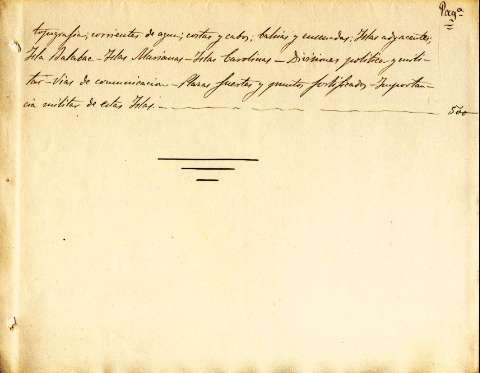 Pagª
topografia; corrientes de agua; costas y cabos; bahias y ensenadas; Islas adyacentes;
Isla Balabac - Islas Marianas - Islas Carolinas - Divisiones politica y mili-
tar - Vias de comunicacion - Plazas fuertes y puntos fortificados - Importan-
cia militar de estas Islas